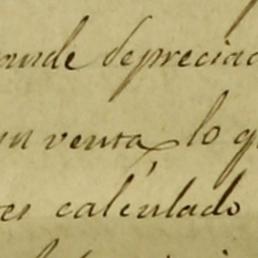 ande depreciac
un venta, lo q
es calculado